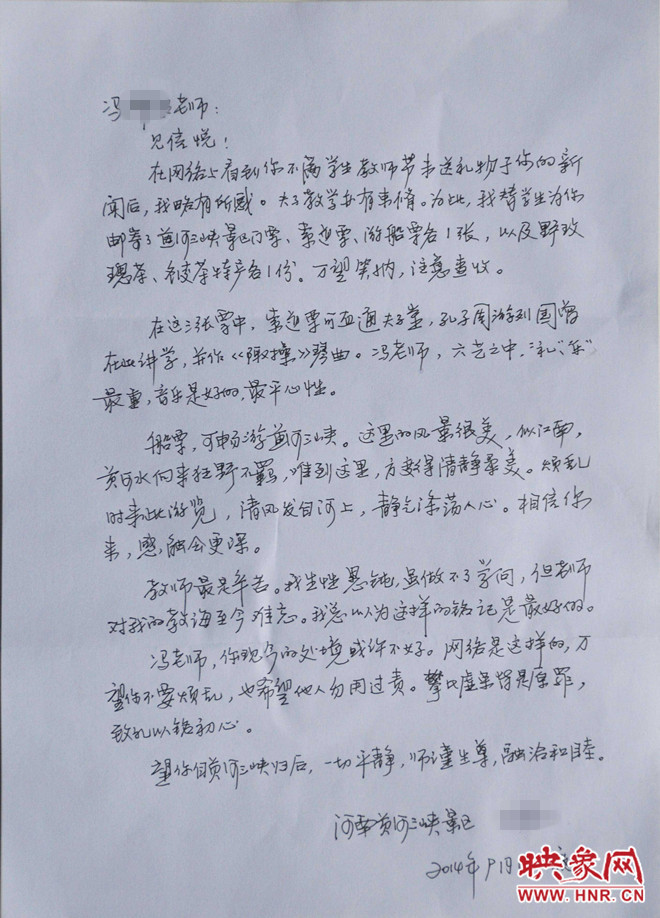 冯 老师:
见信悦!
在网络上看到你不满学生教师节未送礼物于你的新
闻后,我略有所感。夫子教学亦有束脩。为此,我替学生为你
邮寄了黄河三峡景区门票、索道票、游船票各1张,以及野玫
瑰茶、冬凌茶特产各1份。万望笑纳,注意查收。
在这三张票中,索道票可直通夫子堂,孔子周游列国曾
在此讲学,并作《陬操》琴曲。冯老师,六艺之中,“礼”“乐”
最重,音乐是好的,最平心性。
船票,可畅游黄河三峡。这里的风景很美,似江南,
黄河水向来狂野不羁,唯到这里,方变得清静柔美。烦乱
时来此游览,清风发自河上,静气涤荡人心。相信你
来,感触会更深。
教师最是辛苦。我生性愚钝,虽做不了学问,但老师
对我的教诲至今难忘。我总以为这样的铭记是最好的。
冯老师,你现今的处境或许不好。网络是这样的,万
望你不要烦乱,也希望他人勿用过责。攀比虚荣皆是原罪,
致礼以铭初心。
望你自黄河三峡归后,一切平静,师谨生尊,融洽和睦。
河南黄河三峡景区
2014年9月
映象网
WWW.HNR.CN